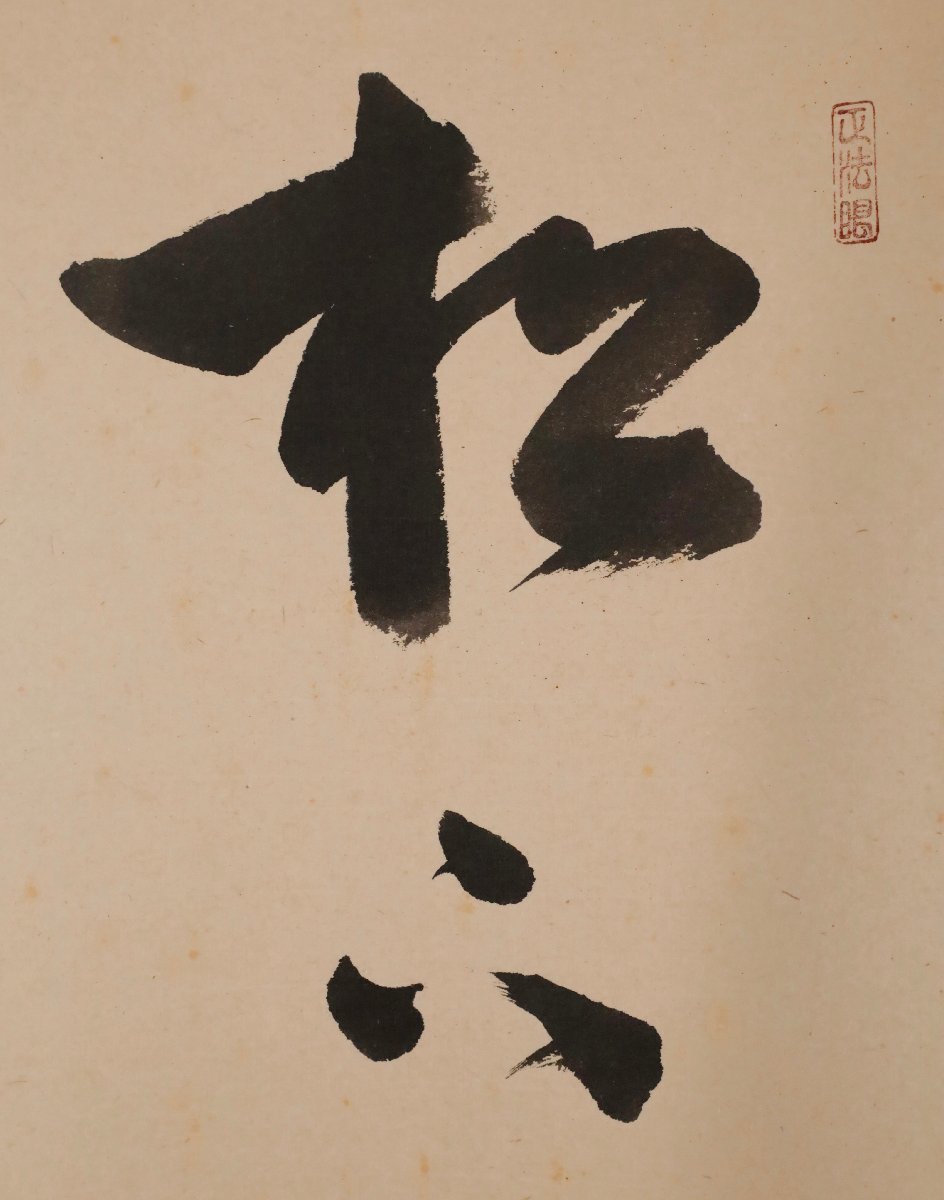 正法眼
松